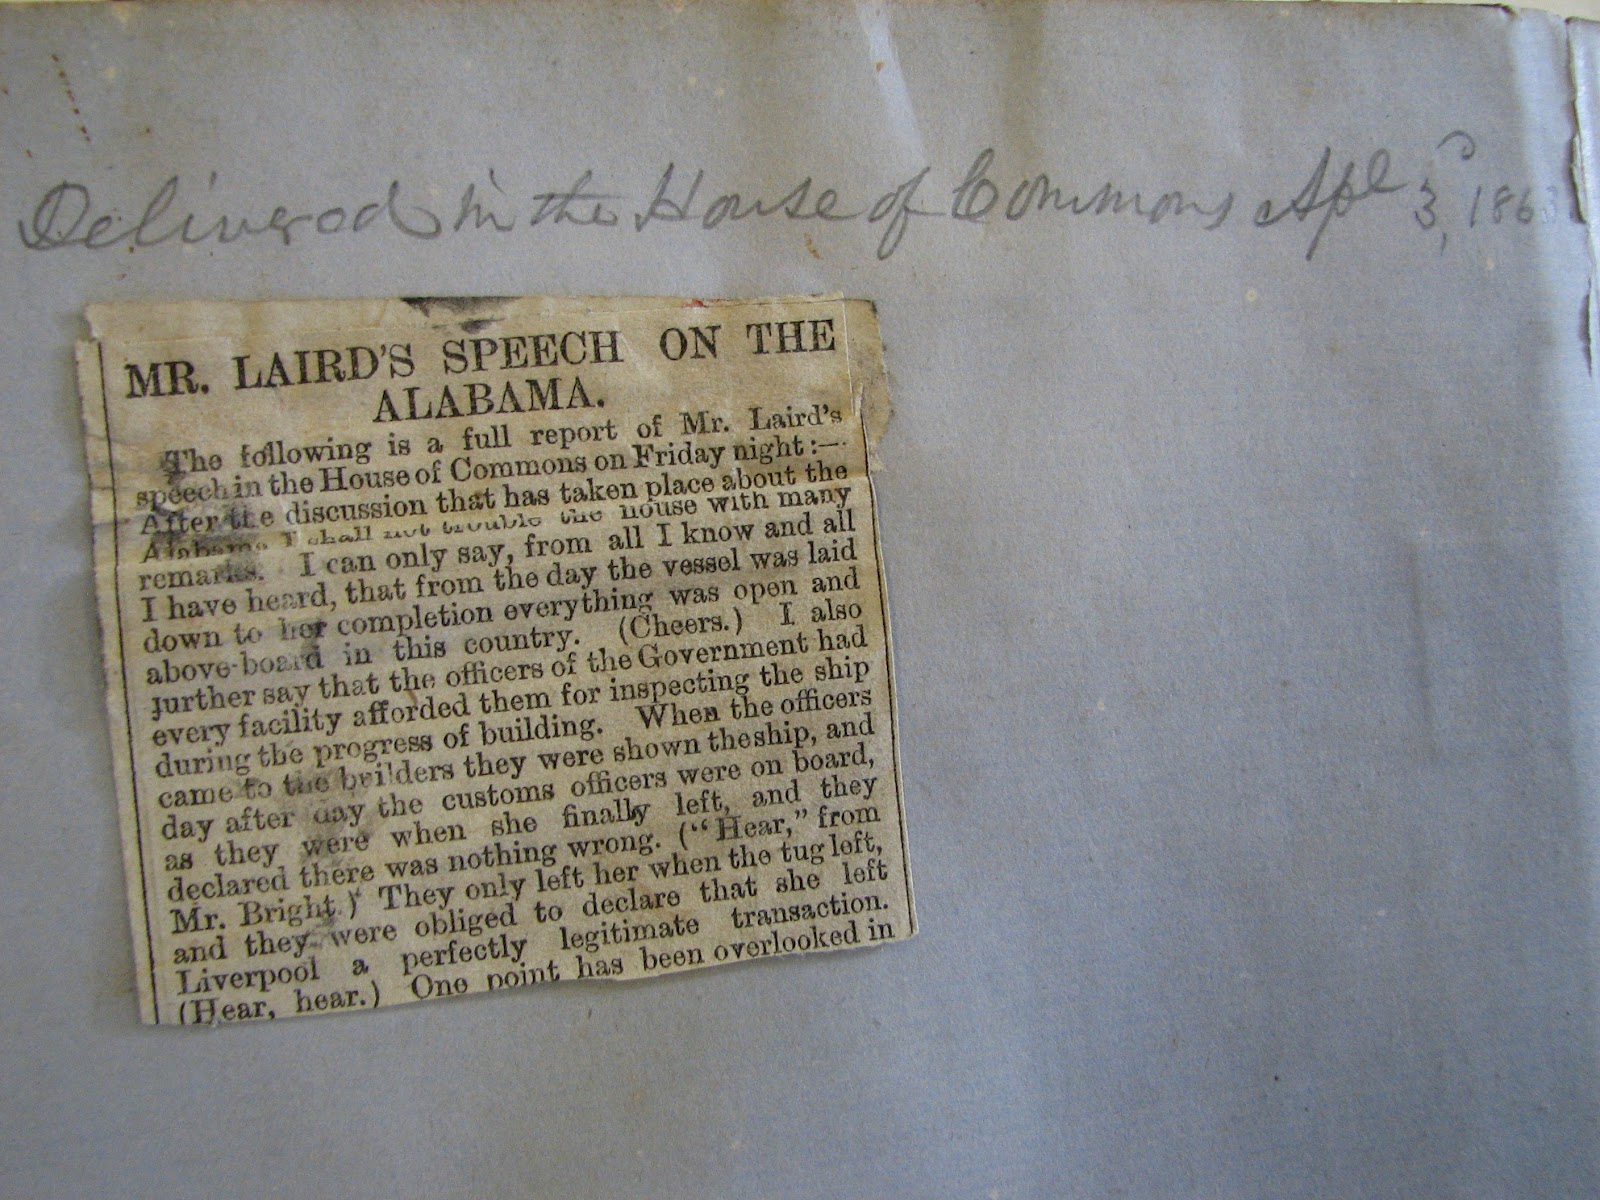 Delivered in the House of Commons Apl 3d, 1863
MR. LAIRD'S SPEECH ON THE
ALABAMA.
The following is a full report of Mr. Laird's
speech in the House of Commons on Friday night :—
After the discussion that has taken place about the
Alabama I shall not trouble the house with many
remarks. I can only say, from all I know and all
I have heard, that from the day the vessel was laid
down to her completion everything was open and
above-board in this country. (Cheers.) I also
further say that the officers of the Government had
every facility afforded them for inspecting the ship
during the progress of building. When the officers
came to the builders they were shown the ship, and
day after day the customs officers were on board,
as they were when she finally left, and they
declared there was nothing wrong. ("Hear," from
Mr. Bright.) They only left her when the tug left,
and they were obliged to declare that she left
Liverpool a perfectly legitimate transaction.
(Hear, hear.) One point has been overlooked in